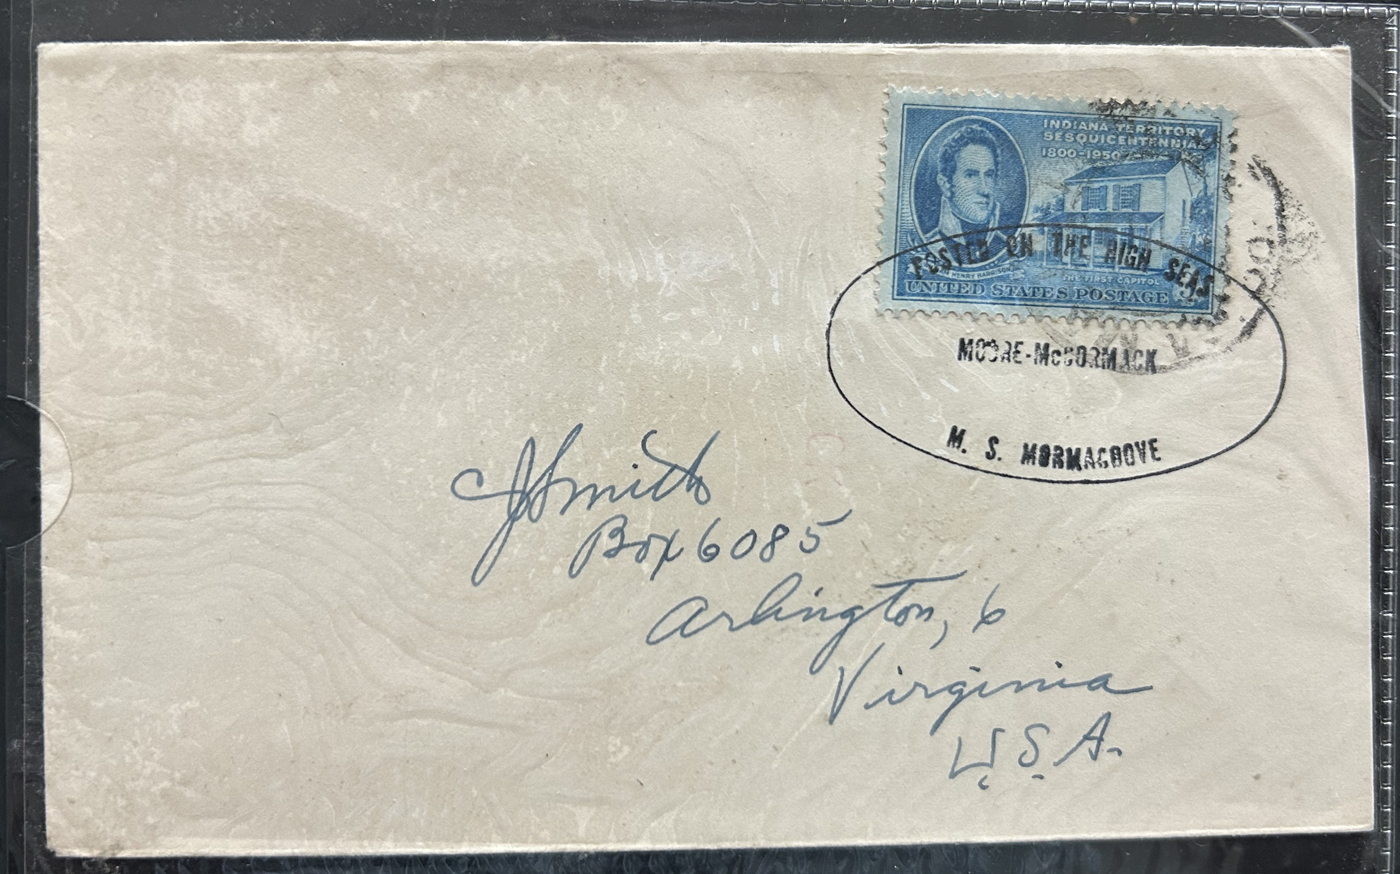 INDIANA TERRITORY
SESQUICENTENNIAL
1800-1950
HENRY HARRISON
THE FIRST CAPITOL
UNITED STATES POSTAGE 3¢
POSTED ON THE HIGH SEAS
MOORE-McCORMACK
M. S. MORMACDOVE
J Smith
Box 6085
Arlington, 6
Virginia
U.S.A.